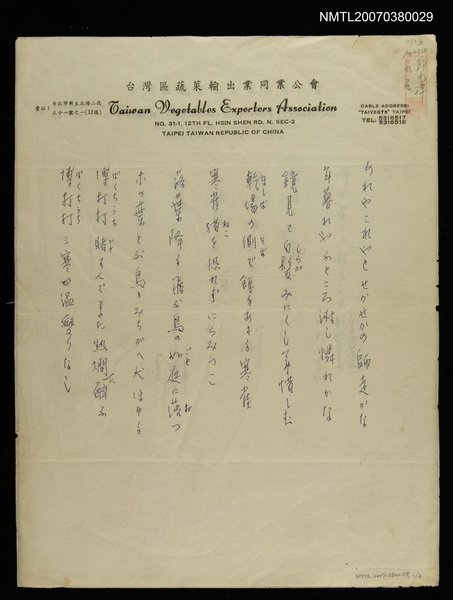 NMTL20070380029
台灣區蔬菜輸出業同業公會
會址：台北市新生北路二段三十一號之一(12樓)
Taiwan Vegetables Exporters Association
NO. 31-1, 12TH FL, HSIN SHEN RD. N. SEC-2
TAIPEI TAIWAN REPUBLIC OF CHINA
CABLE ADDRESS:
"TAIVEGTS" TAIPEI
TEL: 5316517
5316518
あれやこれやとせかせかの師走かな
年暮れやふところ淋し憐れかな
鏡見て白髪みにくし年惜しむ
乾場の側で餌をあさる寒雀
寒雀猫を恐れずにらみつこ
落葉降る飛ぶ鳥の如庭に落つ
木の葉とぶ鳥とみちがへ犬ほゆる
博打打賭もんでまた熱燗酔ふ
博打打三寒四温変りなし
NMTL20070380029, 1/2